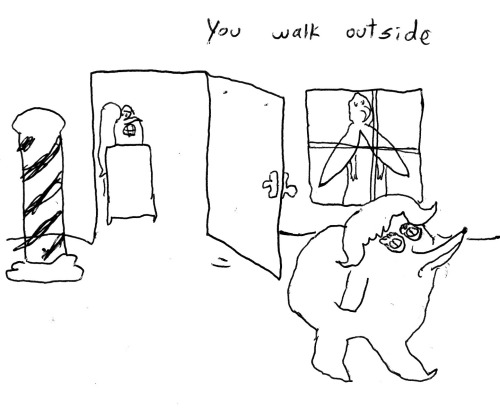 You walk outside